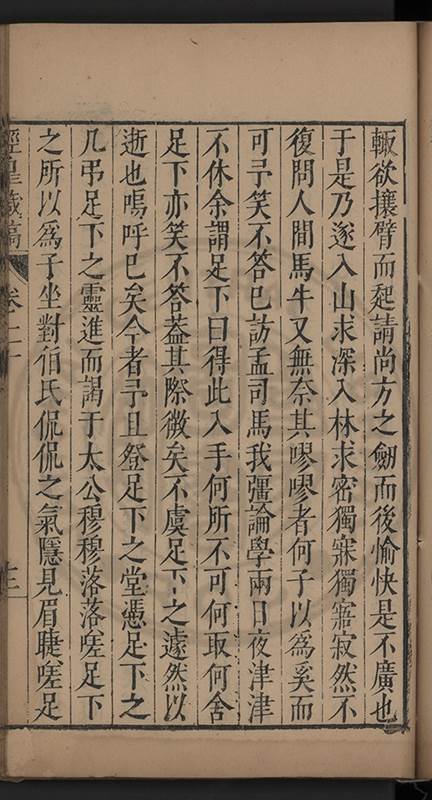 輙欲攘臂而起請尚方之劒而後愉快是不廣也
于是乃遂入山求深入林求密獨寐獨寤寂然不
復問人間馬牛又無奈其嘐嘐者何子以爲奚而
可予笑不答已訪孟司馬我彊論學兩日夜津津
不休余謂足下曰得此入手何所不可何取何舍
足下亦笑不答葢其際微矣不虞足下之遽然以
逝也嗚呼已矣今者予且登足下之堂憑足下之
几弔足下之靈進而謁于太公穆穆落落嗟足下
之所以爲子坐對伯氏侃侃之氣隱見眉睫嗟足
涇臯藏稿 卷二十 三